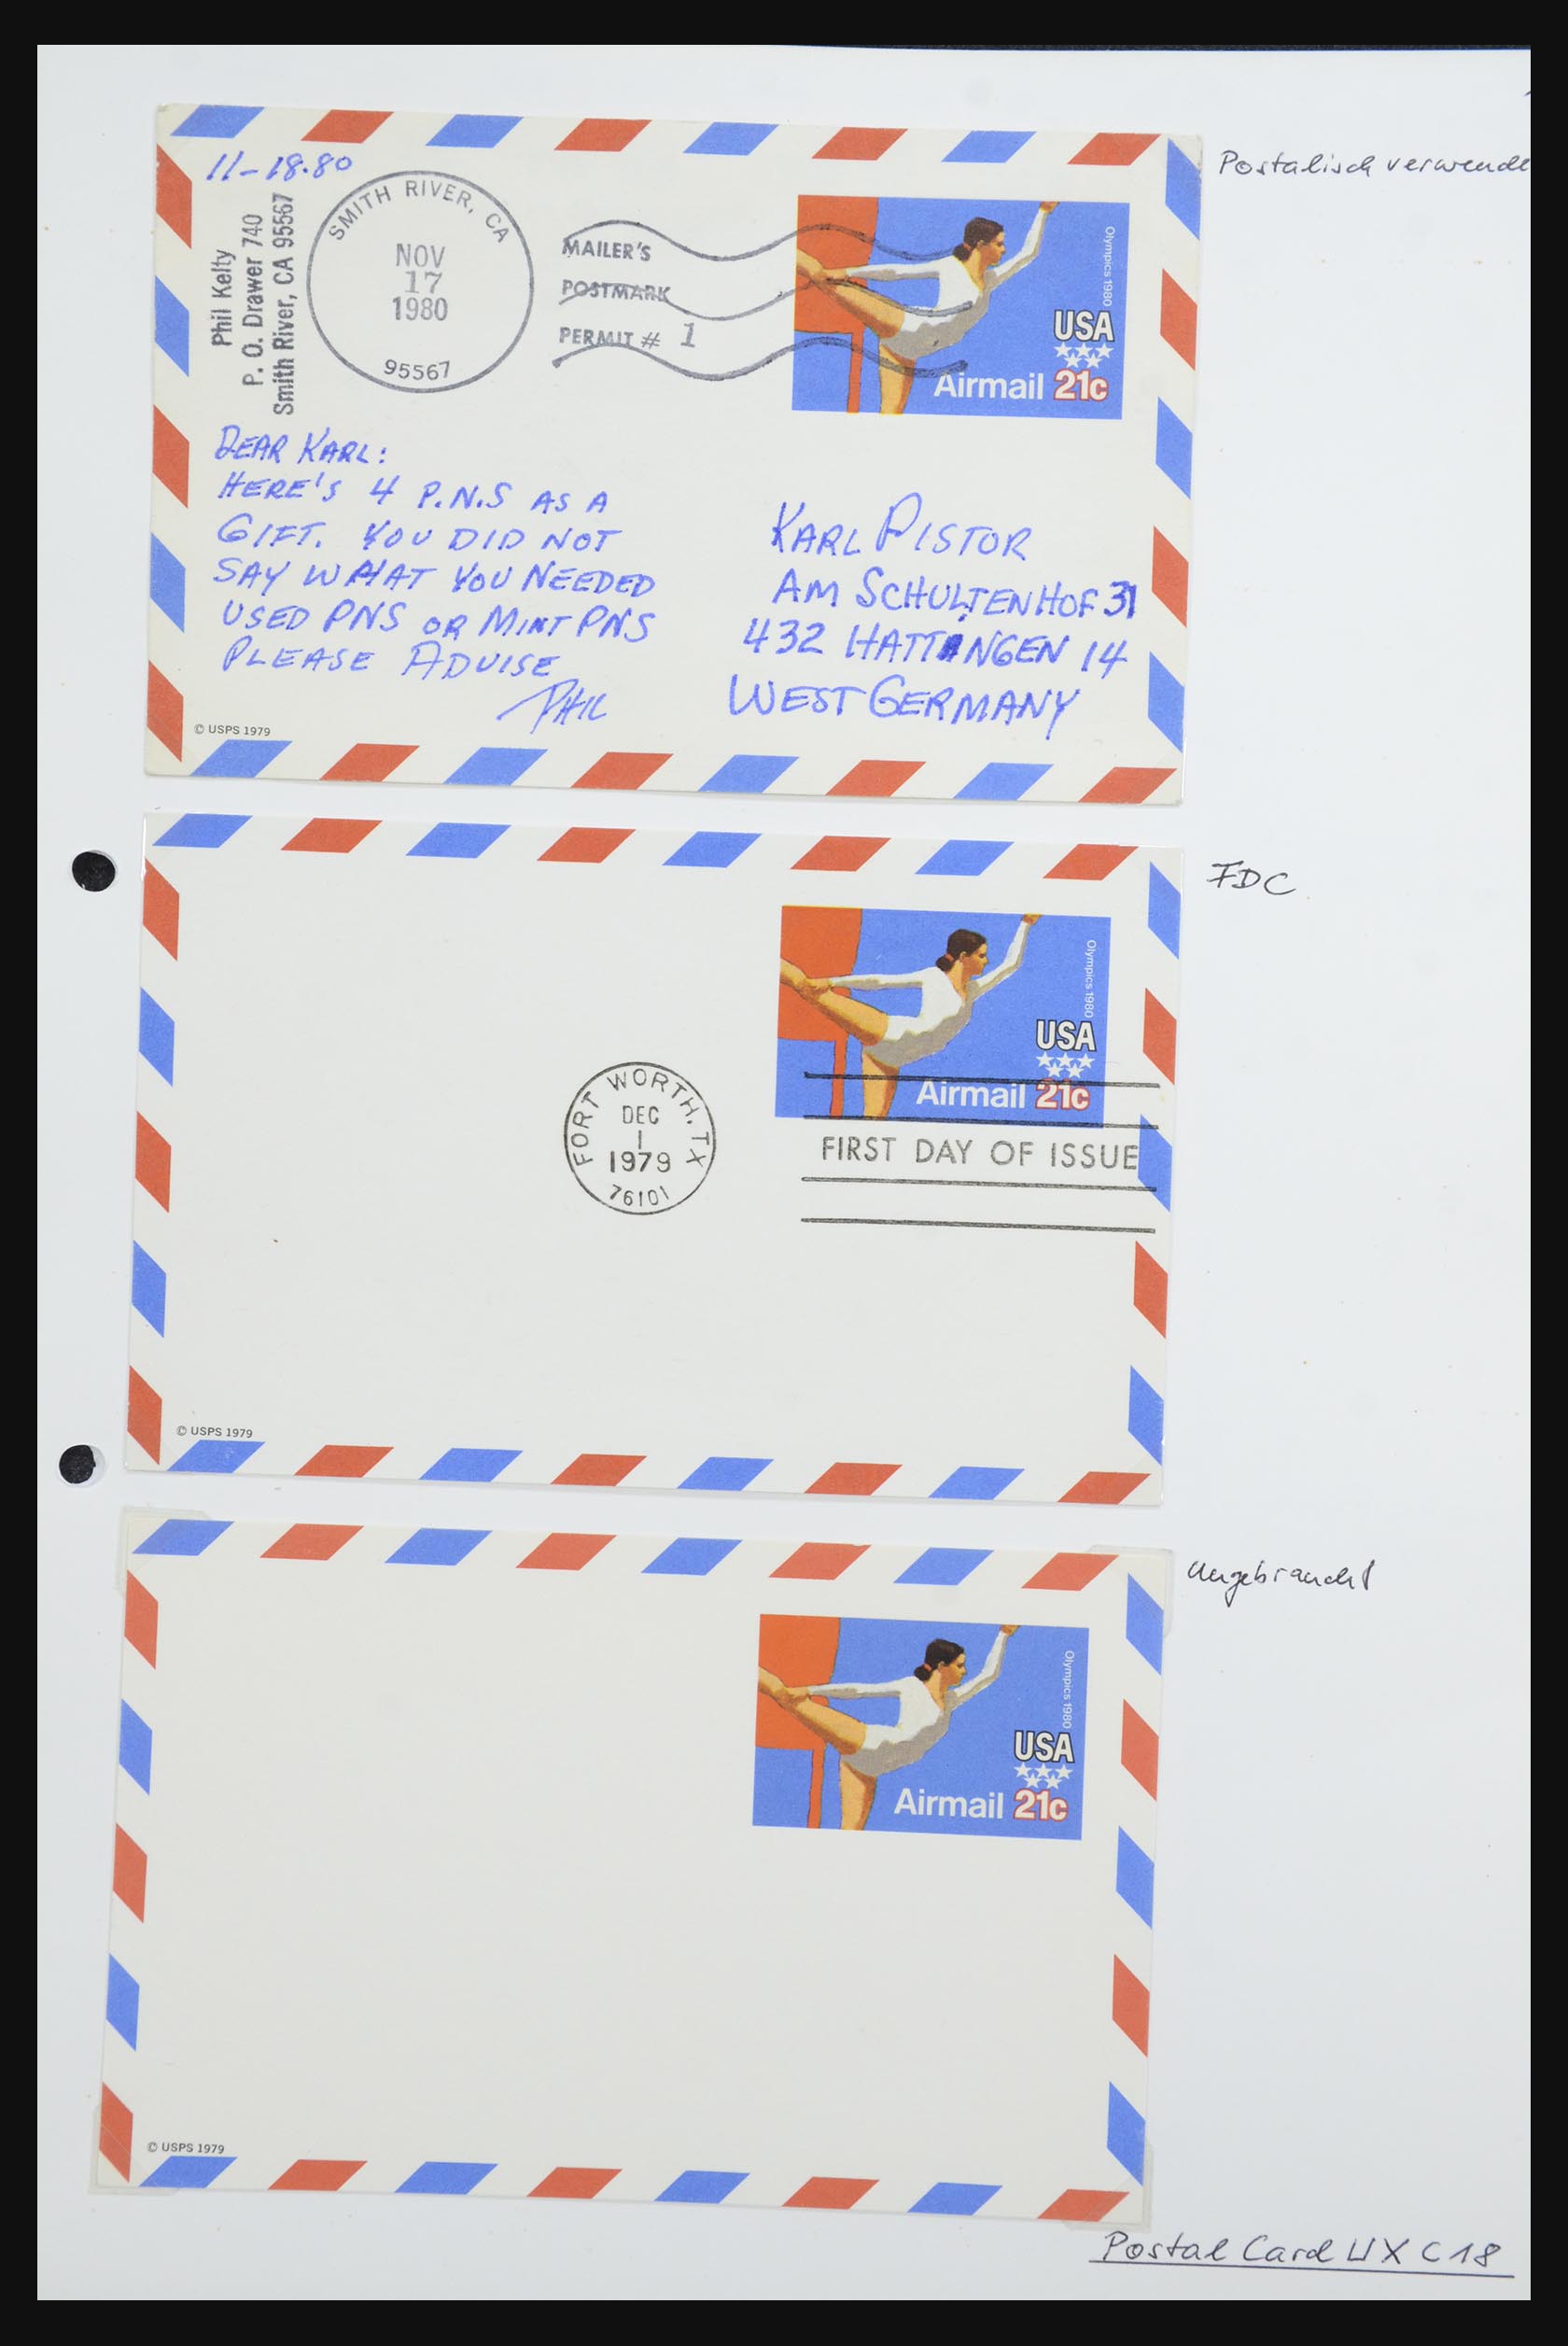 11-18.80
Phil Kelty
P. O. Drawer 740
Smith River, CA 95567
SMITH RIVER, CA
NOV
17
1980
95567
MAILER'S
POSTMARK
PERMIT # 1
Olympics 1980
USA
Airmail 21c
DEAR KARL:
HERE'S 4 P.N.S AS A
GIFT. YOU DID NOT
SAY WHAT YOU NEEDED
USED PNS OR MINT PNS
PLEASE ADVISE
PHIL
KARL PISTOR
AM SCHULTENHOF 31
432 HATTINGEN 14
WEST GERMANY
© USPS 1979
Postalisch verwende
FDC
Olympics 1980
USA
Airmail 21c
FORT WORTH, TX
DEC
1
1979
76101
FIRST DAY OF ISSUE
© USPS 1979
Ungebraucht
Olympics 1980
USA
Airmail 21c
© USPS 1979
Postal Card UXC18